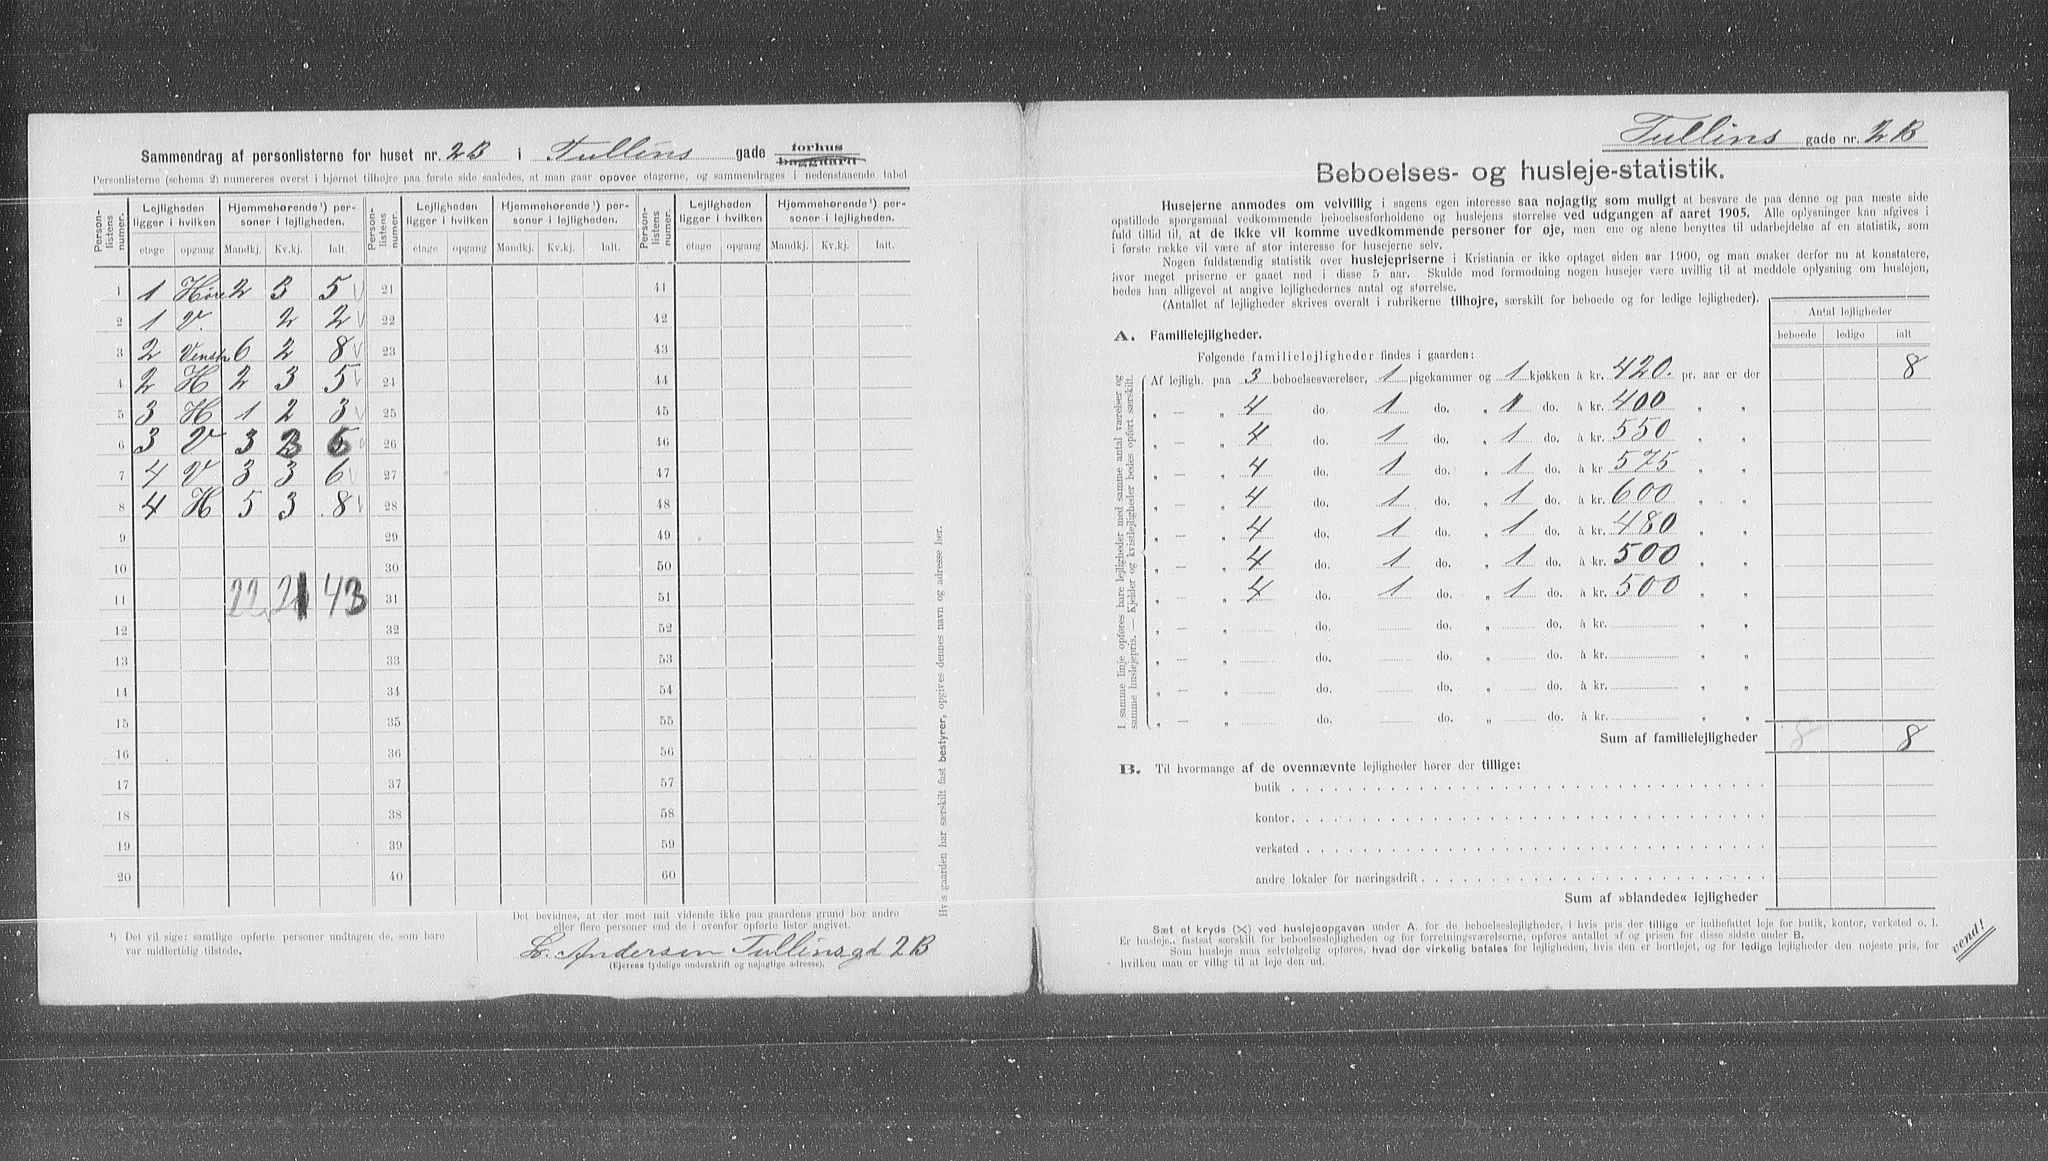 Sammendrag af personlisterne for huset nr. 2B i Tullins gade forhus baggaard
Personlisterne (schema 2) numereres øverst i hjørnet tilhøjre paa første side saaledes, at man gaar opover etagerne, og sammendrages i nedenstaaende tabel
Personlistens numer. Lejligheden ligger i hvilken Hjemmehørende¹) personer i lejligheden. Personlistens numer. Lejligheden ligger i hvilken Hjemmehørende¹) personer i lejligheden. Personlistens numer. Lejligheden ligger i hvilken Hjemmehørende¹) personer i lejligheden.
etage opgang Mandkj. Kv.kj. Ialt. etage opgang Mandkj. Kv.kj. Ialt. etage opgang Mandkj. Kv.kj. Ialt.
1 1 Høire 2 3 5 21 41
2 1 V. 2 2 22 42
3 2 Venstr 6 2 8 23 43
4 2 H 2 3 5 24 44
5 3 H 1 2 3 25 45
6 3 V 3 3 6 26 46
7 4 V 3 3 6 27 47
8 4 H 5 3 8 28 48
9 29 49
10 30 50
11 22 21 43 31 51
12 32 52
13 33 53
14 34 54
15 35 55
16 36 56
17 37 57
18 38 58
19 39 59
20 40 60
Hvis gaarden har særskilt fast bestyrer, opgives dennes navn og adresse her.
¹) Det vil sige: samtlige opførte personer undtagen de, som bare
var midlertidig tilstede.
Det bevidnes, at der med mit vidende ikke paa gaardens grund bor andre
eller flere personer end de i ovenfor opførte lister angivet.
L. Andersen Tullinsgd 2B
(Ejerens tydelige underskrift og nøjagtige adresse).
Tullins gade nr. 2B
Beboelses- og husleje-statistik.
Husejerne anmodes om velvillig i sagens egen interesse saa nøjagtig som muligt at besvare de paa denne og paa næste side
opstillede spørgsmaal vedkommende beboelsesforholdene og huslejens størrelse ved udgangen af aaret 1905. Alle oplysninger kan afgives i
fuld tillid til, at de ikke vil komme uvedkommende personer for øje, men ene og alene benyttes til udarbejdelse af en statistik, som
i første række vil være af stor interesse for husejerne selv.
Nogen fuldstændig statistik over huslejepriserne i Kristiania er ikke optaget siden aar 1900, og man ønsker derfor nu at konstatere,
hvor meget priserne er gaaet ned i disse 5 aar. Skulde mod formodning nogen husejer være uvillig til at meddele oplysning om huslejen,
bedes han alligevel at angive lejlighedernes antal og størrelse.
(Antallet af lejligheder skrives overalt i rubrikerne tilhøjre, særskilt for beboede og for ledige lejligheder).
Antal lejligheder
beboede ledige ialt
A. Familielejligheder.
Følgende familielejligheder findes i gaarden:
I samme linje opføres bare lejligheder med samme antal værelser og
samme huslejepris. — Kjelder og kvistlejligheder bedes opført særskilt.
Af lejligh. paa 3 beboelsesværelser, 1 pigekammer og 1 kjøkken à kr. 420. pr. aar er der 8
„ — „ 4 do. 1 do. „ 1 do. à kr. 400 „ „
„ — „ 4 do. 1 do. „ 1 do. à kr. 550 „ „
„ — „ 4 do. 1 do. „ 1 do. à kr 575 „ „
„ — „ 4 do. 1 do. „ 1 do. à kr. 600 „ „
„ — „ 4 do. 1 do. „ 1 do. à kr. 480 „ „
„ — „ 4 do. 1 do. „ 1 do. à kr. 500 „ „
„ — „ 4 do. 1 do. „ 1 do. à kr. 500 „ „
„ — „ do. do. „ do. à kr. „ „
„ — „ do. do. „ do. à kr. „ „
„ — „ do. do. „ do. à kr. „ „
„ — „ do. do. „ do. à kr „ „
Sum af familielejligheder 8 8
B. Til hvormange af de ovennævnte lejligheder hører der tillige:
butik
kontor
verksted
andre lokaler for næringsdrift
Sum af »blandede« lejligheder
Sæt et kryds (X) ved huslejeopgaven under A. for de beboelseslejligheder, i hvis pris der tillige er indbefattet leje for butik, kontor, verksted o. l.
Er husleje, fastsat særskilt for beboelseslejligheden og for forretningsværelserne, opføres antallet af og prisen for disse sidste under B.
Som husleje maa selvfølgelig opføres, hvad der virkelig betales for lejligheden, hvis den er bortlejet, og for ledige lejligheder den nøjeste pris, for
hvilken man er villig til at leje den ud.
vend!